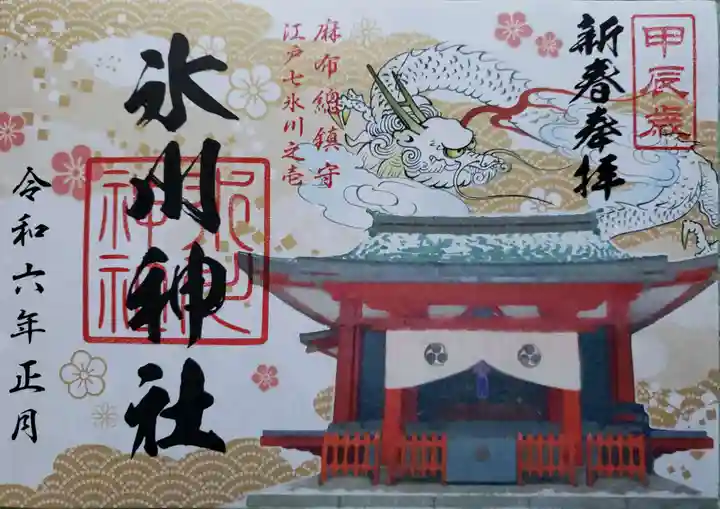 甲辰歳
新春奉拝
麻布總鎮守
江戸七氷川之壱
氷川神社
令和六年正月